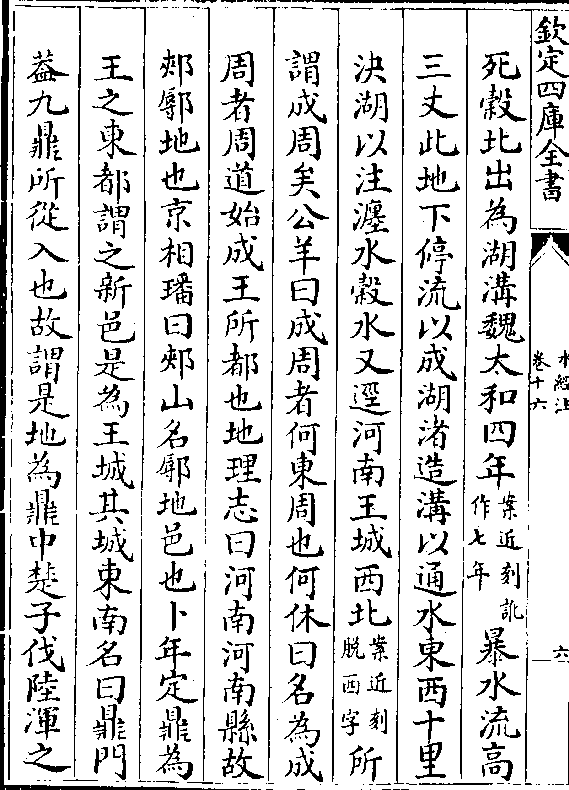 欽定四庫全書
水經注
卷十六
六
死穀北出為湖溝魏太和四年案近刻訛作七年暴水流高
三丈此地下停流以成湖渚造溝以通水東西十里
決湖以注瀍水穀水又逕河南王城西北案近刻脫西字所
謂成周矣公羊曰成周者何東周也何休曰名為成
周者周道始成王所都也地理志曰河南河南縣故
郟鄏地也京相璠曰郟山名鄏地邑也卜年定鼎為
王之東都謂之新邑是為王城其城東南名曰鼎門
葢九鼎所從入也故謂是地為鼎中楚子伐陸渾之